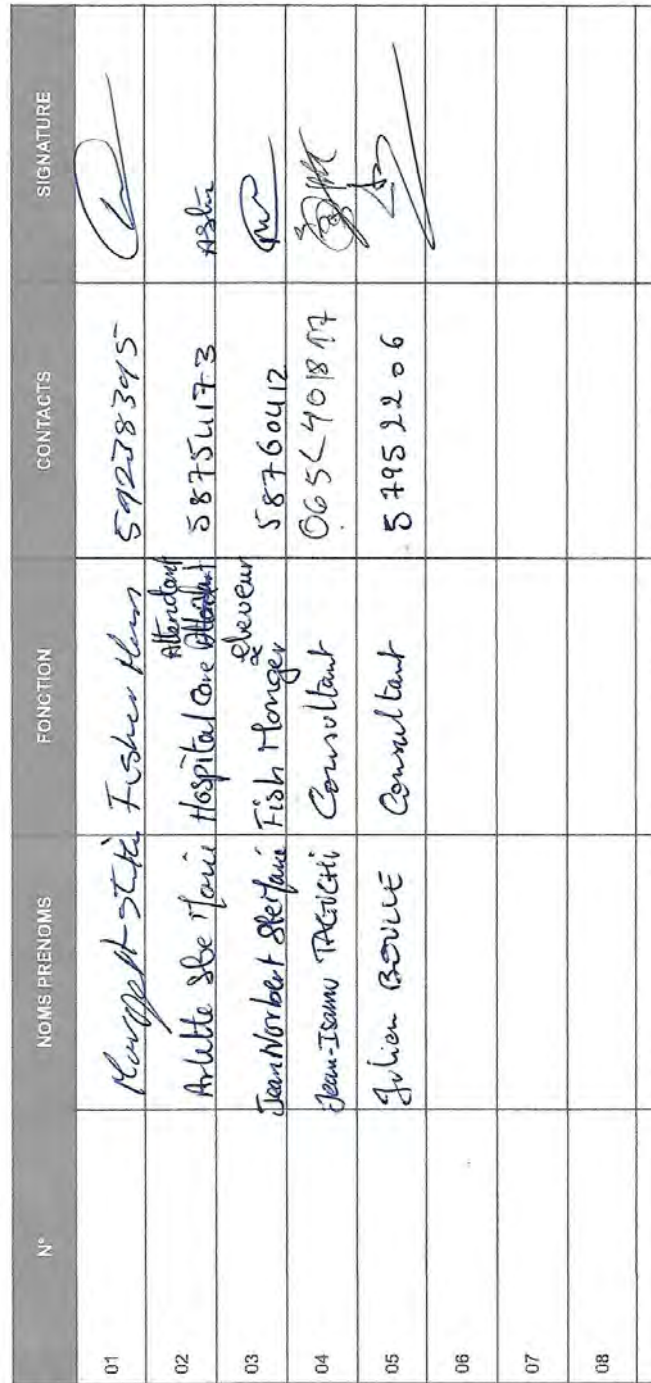 N° NOMS PRENOMS FONCTION CONTACTS SIGNATURE
01 59238395
02 Arlette Ste Marie Hospital Care Attendant 58754173
03 Jean Norbert Ste Marie Fish Monger éleveur 58760412
04 Jean-Isamu TAGUCHI Consultant
05 Julien BOULLE Consultant 57952206
06
07
08